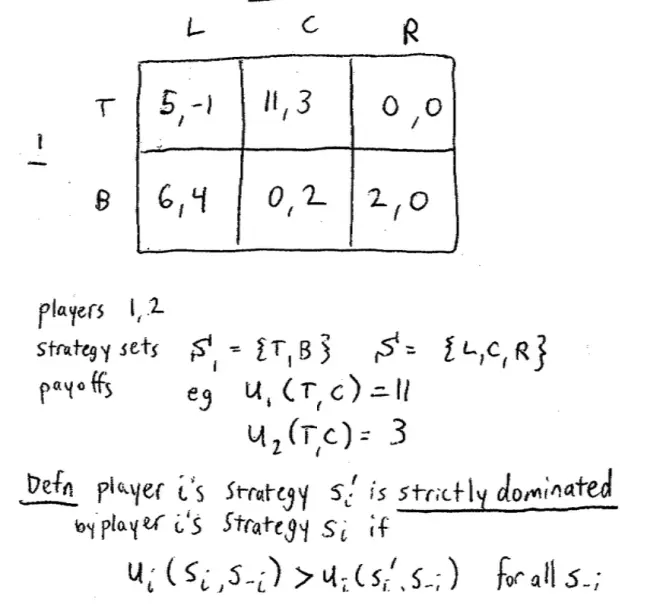 L C R
T 5,-1 11,3 0,0
1
B 6,4 0,2 2,0
players 1,2
strategy sets S₁ = {T,B} S = {L,C,R}
payoffs eg u₁(T,C)=11
u₂(T,C)= 3
Defn player i's strategy sᵢ' is strictly dominated
by player i's strategy sᵢ if
uᵢ(sᵢ,s₋ᵢ) > uᵢ(sᵢ',s₋ᵢ) for all s₋ᵢ